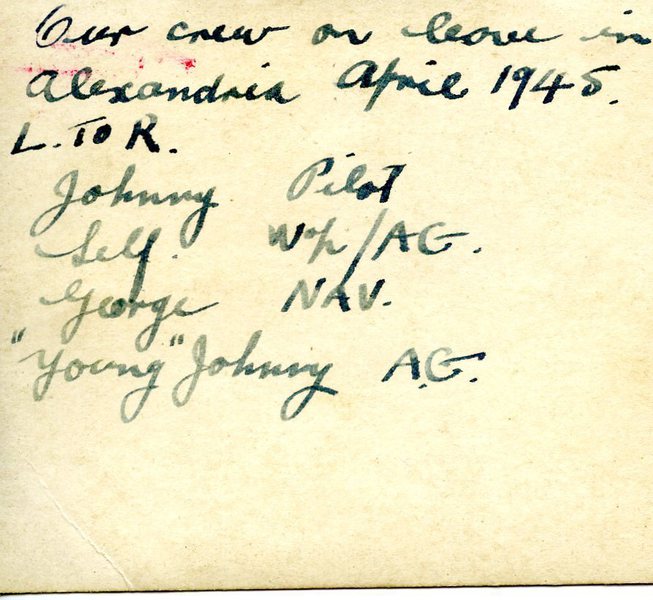 Our crew on leave in
Alexandria April 1945.
L. TO R.
Johnny Pilot
Self. Wop/AG.
George NAV.
"Young" Johnny A.G.